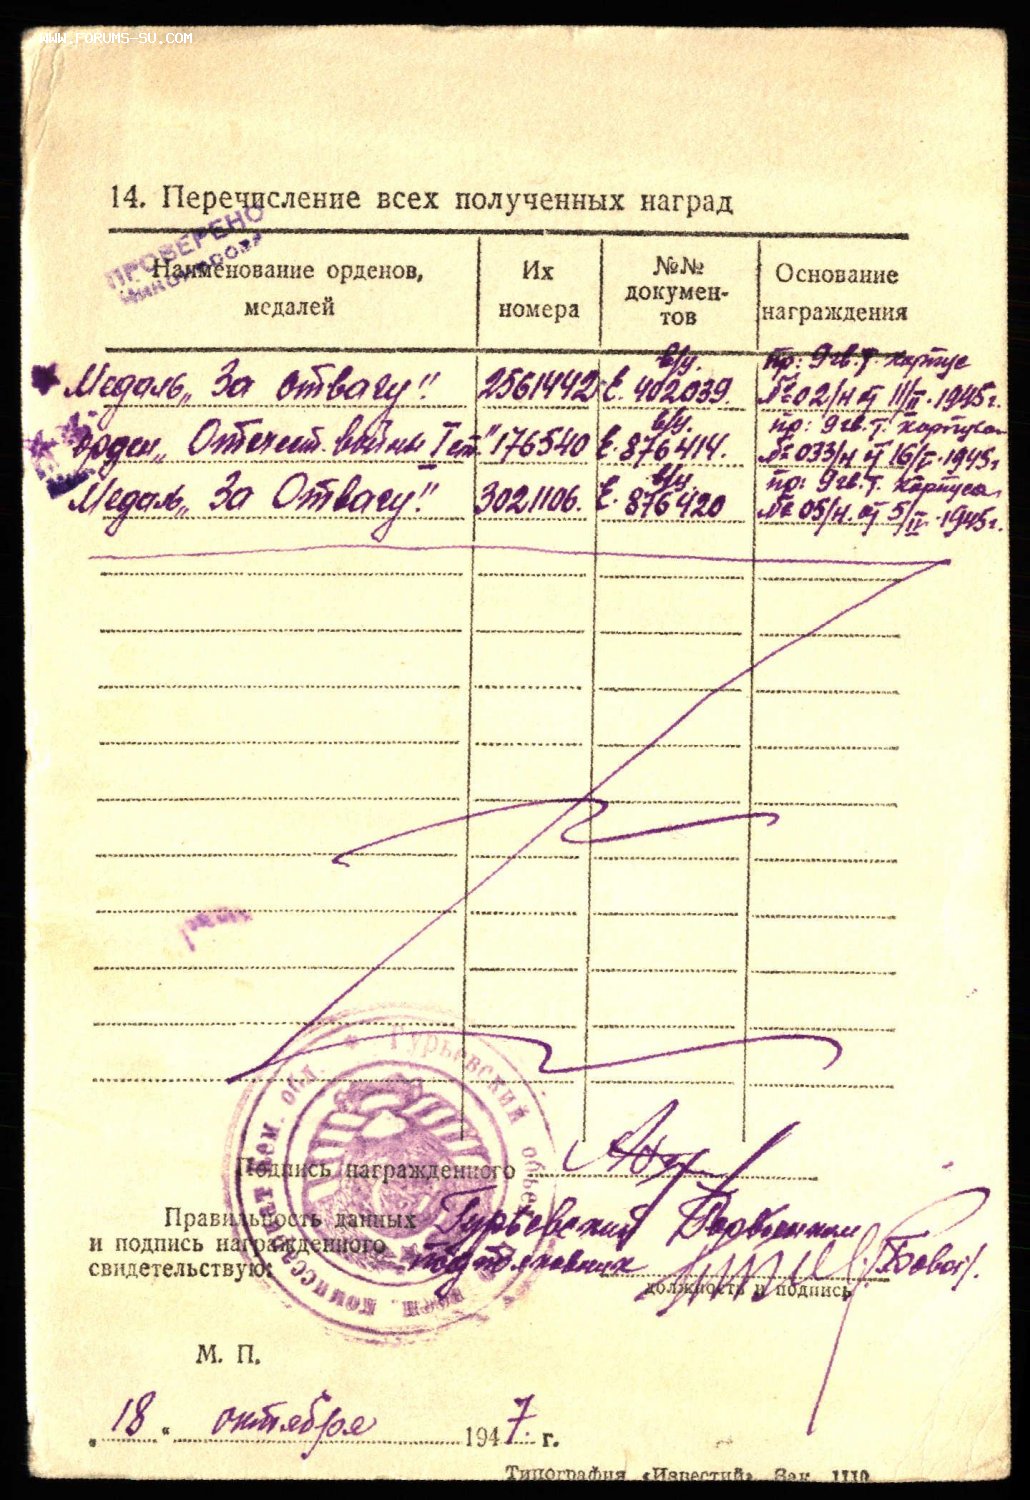 WWW.FORUMS-SU.COM
14. Перечисление всех полученных наград
ПРОВЕРЕНО
Наименование орденов, медалей
Их номера
№№ докумен-тов
Основание награждения
Медаль „За отвагу". 2561442 в/у. Е. 402039. пр: 9 гв. т. корпус № 02/н от III/II-1945г.
Орден „Отечест. войны I ст." 176540 в/у. Е. 876414. пр: 9 гв. т. корпуса № 033/н от 16/V-1945г
Медаль „За Отвагу". 3021106. в/у. Е. 876420 пр: 9 гв. т. корпуса № 05/н. от 5/IV-1945г.
Подпись награжденного
Правильность данных
и подпись награжденного
свидетельствую:
Гурьевский
подполковник
должность и подпись
Гурьевский объед. воен. комиссариат Кем. обл.
М. П.
„18" октября 1947. г.
Типография «Известий» Зак. 1110